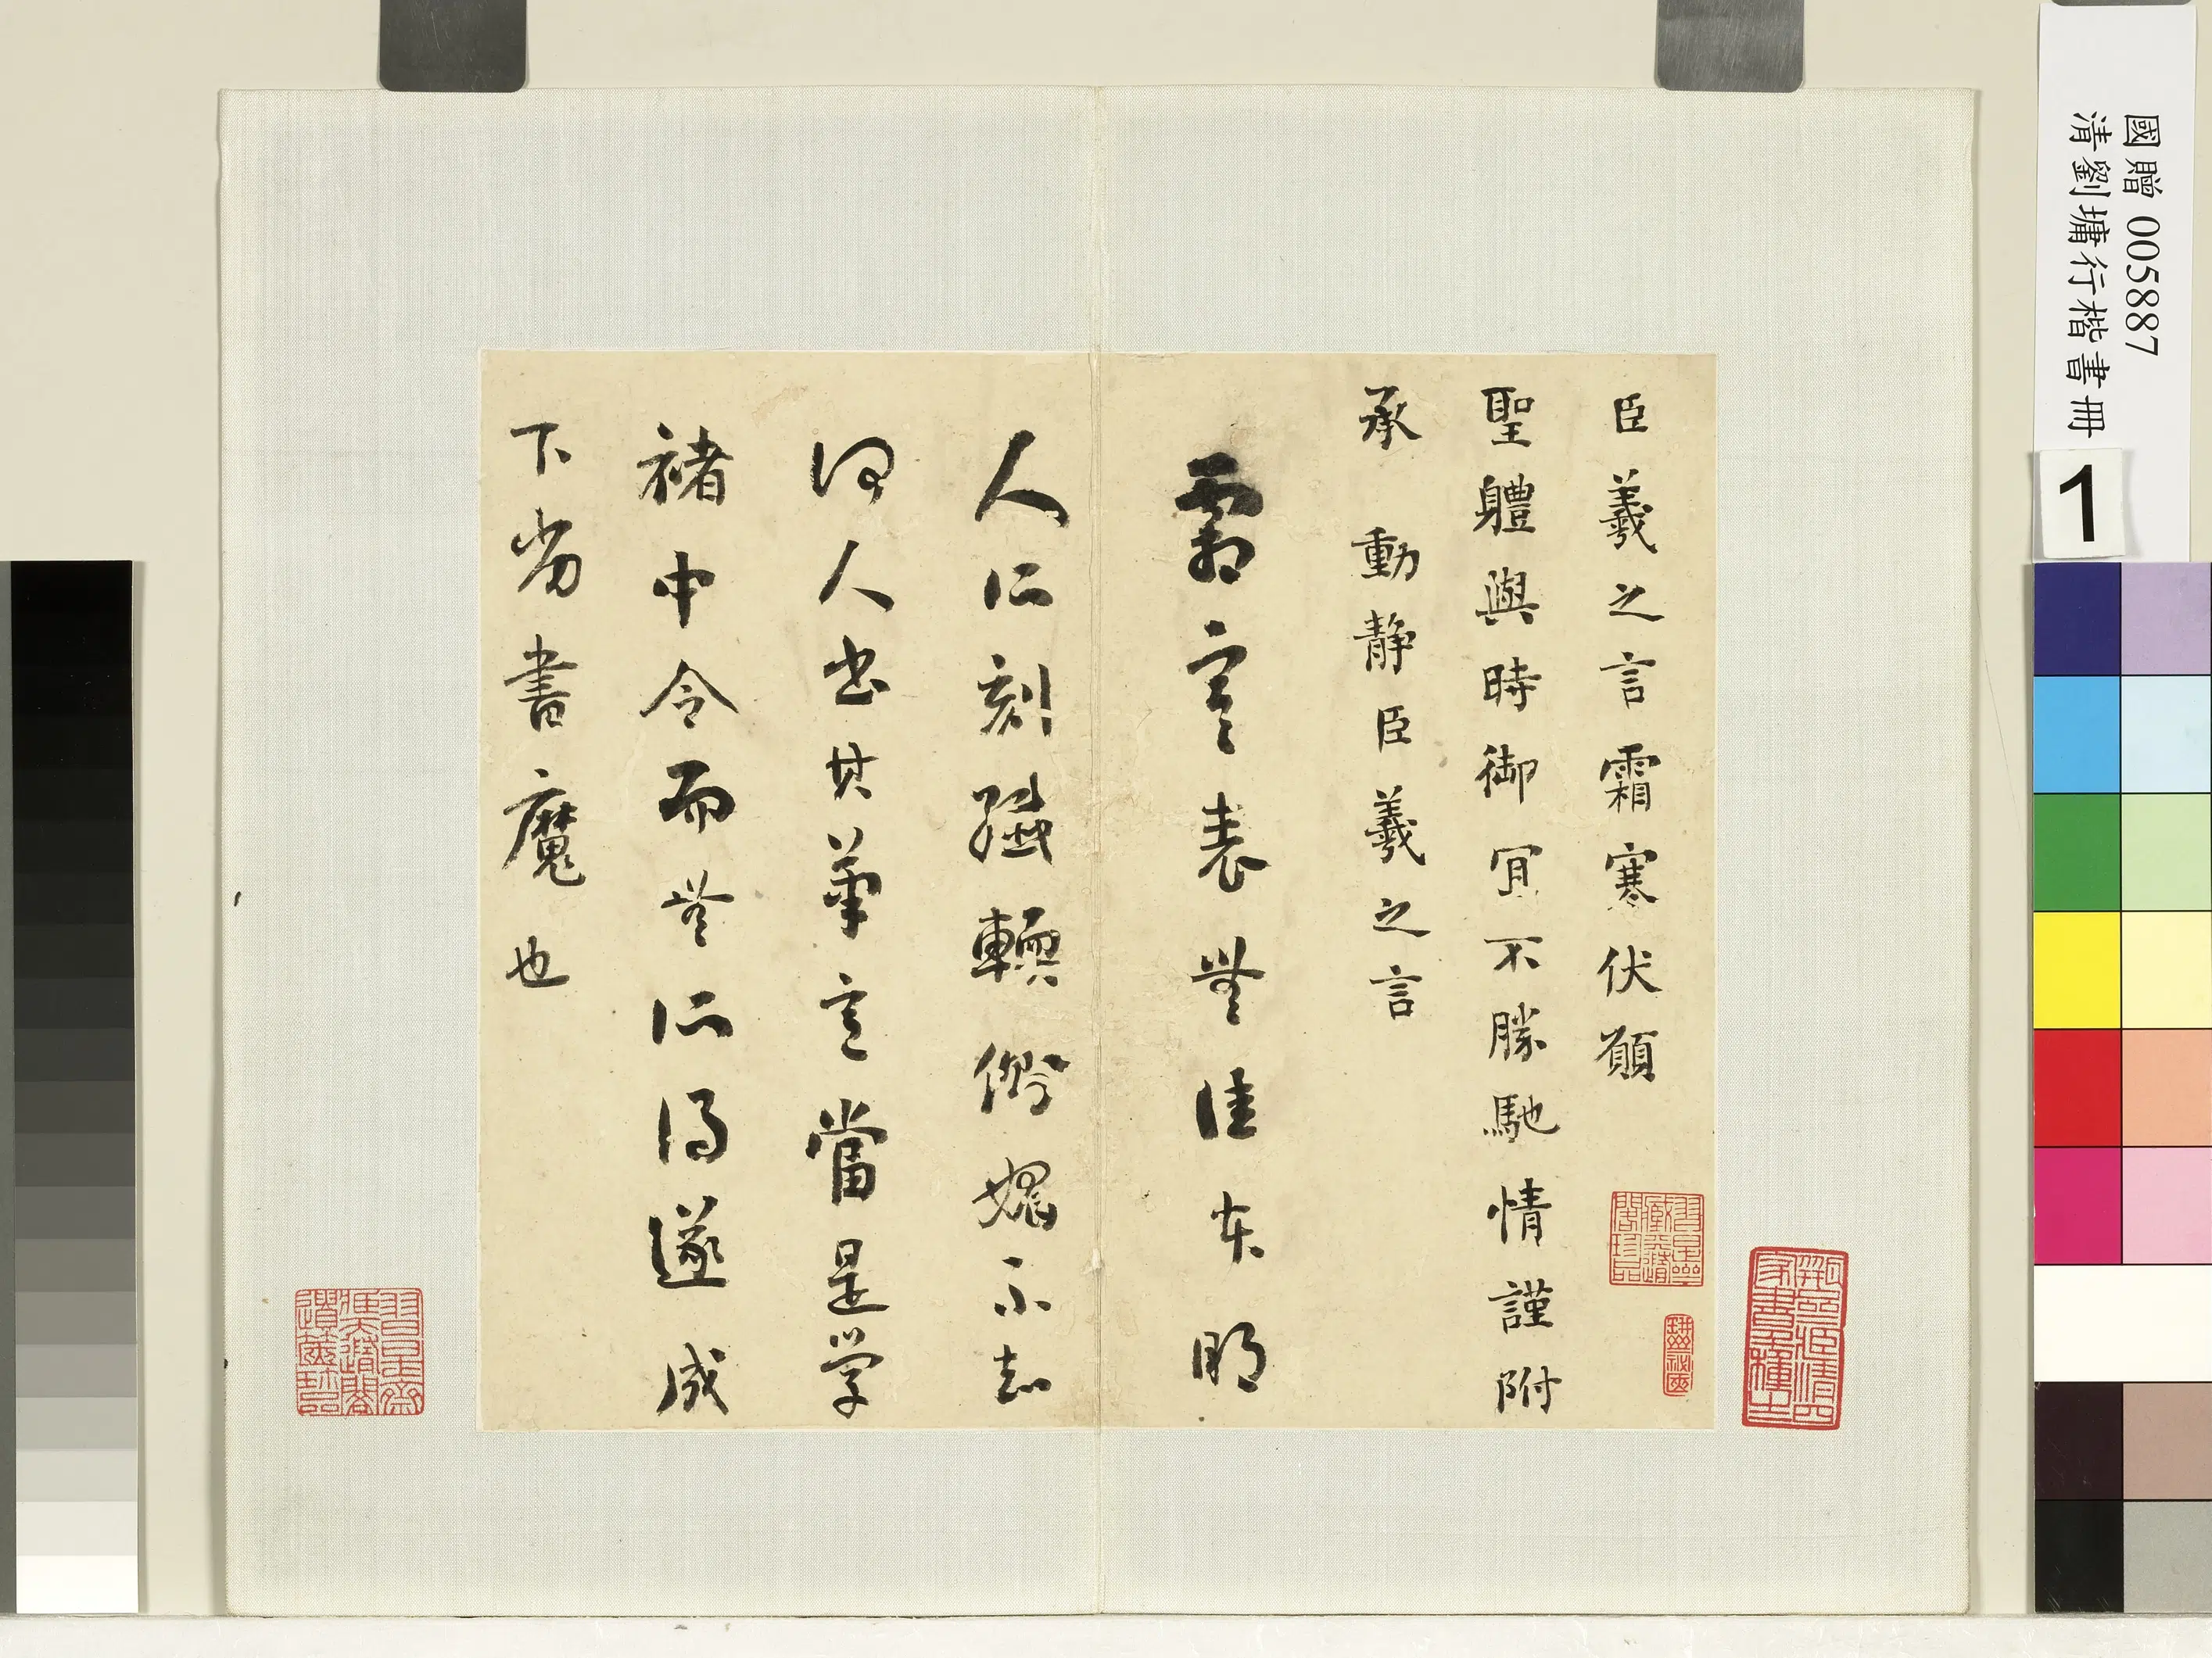 國贈 005887
清劉墉行楷書冊
1
臣羲之言霜寒伏願
聖軆與時御宜不勝馳情謹附
承 動静臣羲之言
霜寒表無佳本明
人所刻殊輭俗媚不知
何人書其筆意當是学
褚中令而無所得遂成
下劣書魔也